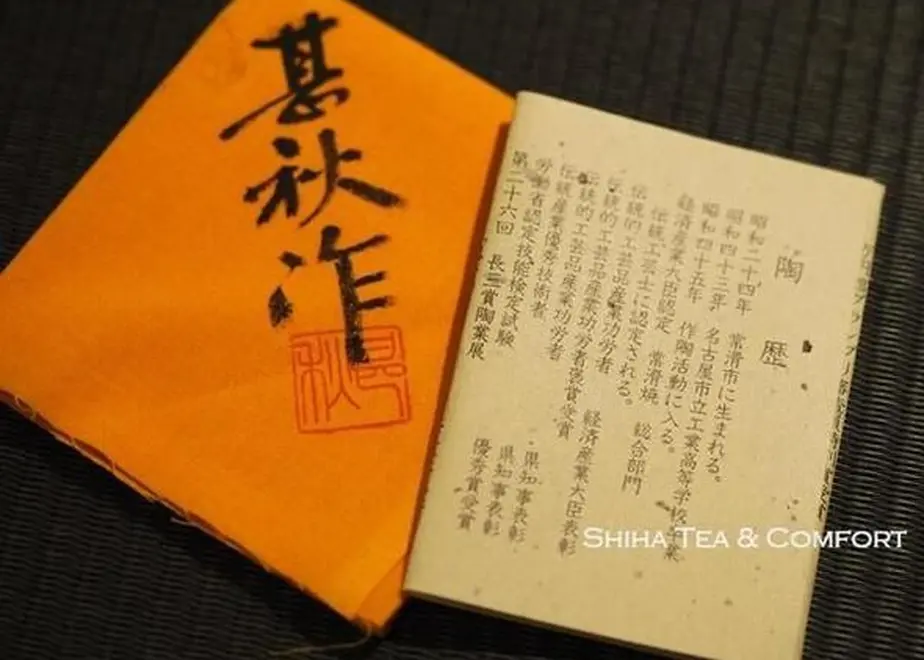 甚秋作
甚秋
陶歴
昭和二十四年 常滑市に生まれる。
昭和四十三年 名古屋市立工業高等学校卒業
昭和四十五年 作陶活動に入る。
経済産業大臣認定 常滑焼 総合部門
伝統工芸士に認定される。
伝統的工芸品産業功労者 経済産業大臣表彰
伝統的工芸品産業功労者褒賞受賞
伝統的工芸品産業功労者 県知事表彰
伝統産業優秀技術者 県知事表彰
労働省認定技能検定試験
第二十六回 長三賞陶業展 優秀賞受賞
SHIHA TEA & COMFORT